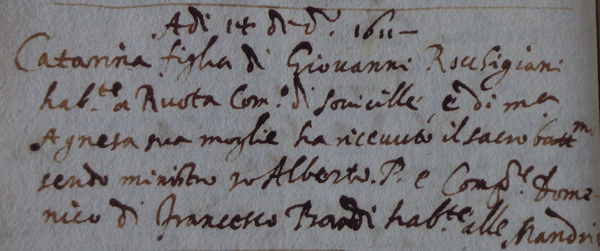 A dì 14 di d.º 1611
Catarina figlia di Giovanni Rossigiani
hab.te a Ruota Com.º di Sovicille, e di m.a
Agnesa sua moglie ha ricevuto il sacro batt.m
sendo ministro io Alberto. P. e Comp.e Dome-
nico di Francesco Bandi hab.te alle Mandrie